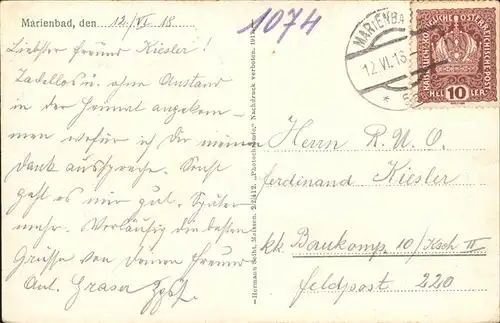 Marienbad, den 12/VI 18
Liebster Freund Kiesler!
Tadellos u. ohne Anstand
in der Heimat angekom-
men wofür ich Dir meinen
Dank ausspreche. Sonst
geht es mir gut. Später
mehr. Vorläufig die besten
Grüsse von Deinen Freund
Ant. Graser
1074
MARIENBA
12.VI.18
KAIS. KÖNIGLICHE ÖSTERREICHISCHE POST
HEL 10 LER
Herrn R.U.O.
Ferdinand Kiesler
kk Baukomp. 10/Ksch II
Feldpost 220
Hermann Seibt, Meissen. 2/2412. „Photochromie.“ Nachdruck verboten. 191